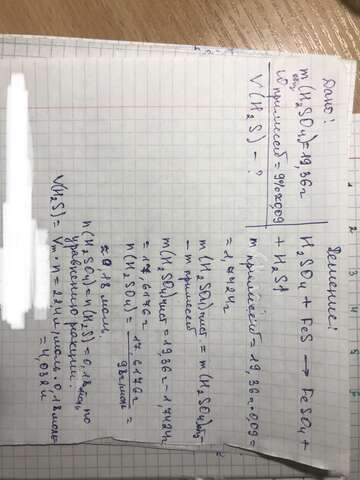 Дано:
m(H₂SO₄)общ=19,36г
ω примесей=9%=0,09
V(H₂S) - ?
Решение:
H₂SO₄ + FeS → FeSO₄ +
+ H₂S↑
m примесей = 19,36г·0,09=
= 1,7424г
m(H₂SO₄)чист. = m(H₂SO₄)общ-
- m примесей
m(H₂SO₄)чист = 19,36г - 1,7424г
= 17,6176г
n(H₂SO₄) = 17,6176г / 98г/моль =
≈ 0,18 моль
n(H₂SO₄)=n(H₂S)=0,18моль по
уравнению реакции
V(H₂S)= Vm · n = 22,4л/моль·0,18моль
= 4,03л